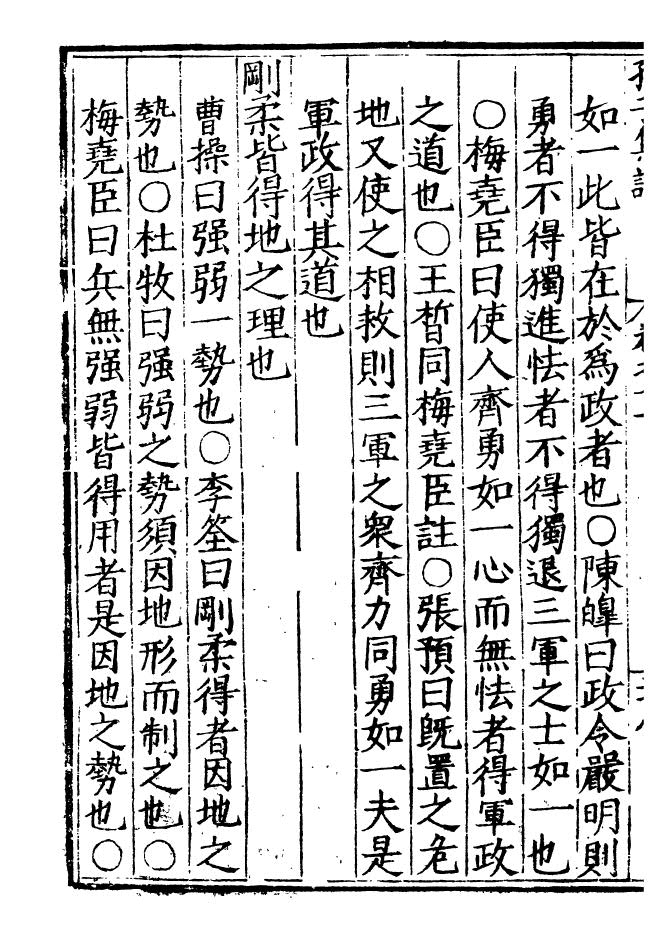 如一此皆在於爲政者也〇陳皥曰政令嚴明則
勇者不得獨進怯者不得獨退三軍之士如一也
〇梅堯臣曰使人齊勇如一心而無怯者得軍政
之道也〇王晳同梅堯臣註〇張預曰旣置之危
地又使之相救則三軍之衆齊力同勇如一夫是
軍政得其道也
剛柔皆得地之理也
曹操曰强弱一勢也〇李筌曰剛柔得者因地之
勢也〇杜牧曰强弱之勢須因地形而制之也〇
梅堯臣曰兵無强弱皆得用者是因地之勢也〇